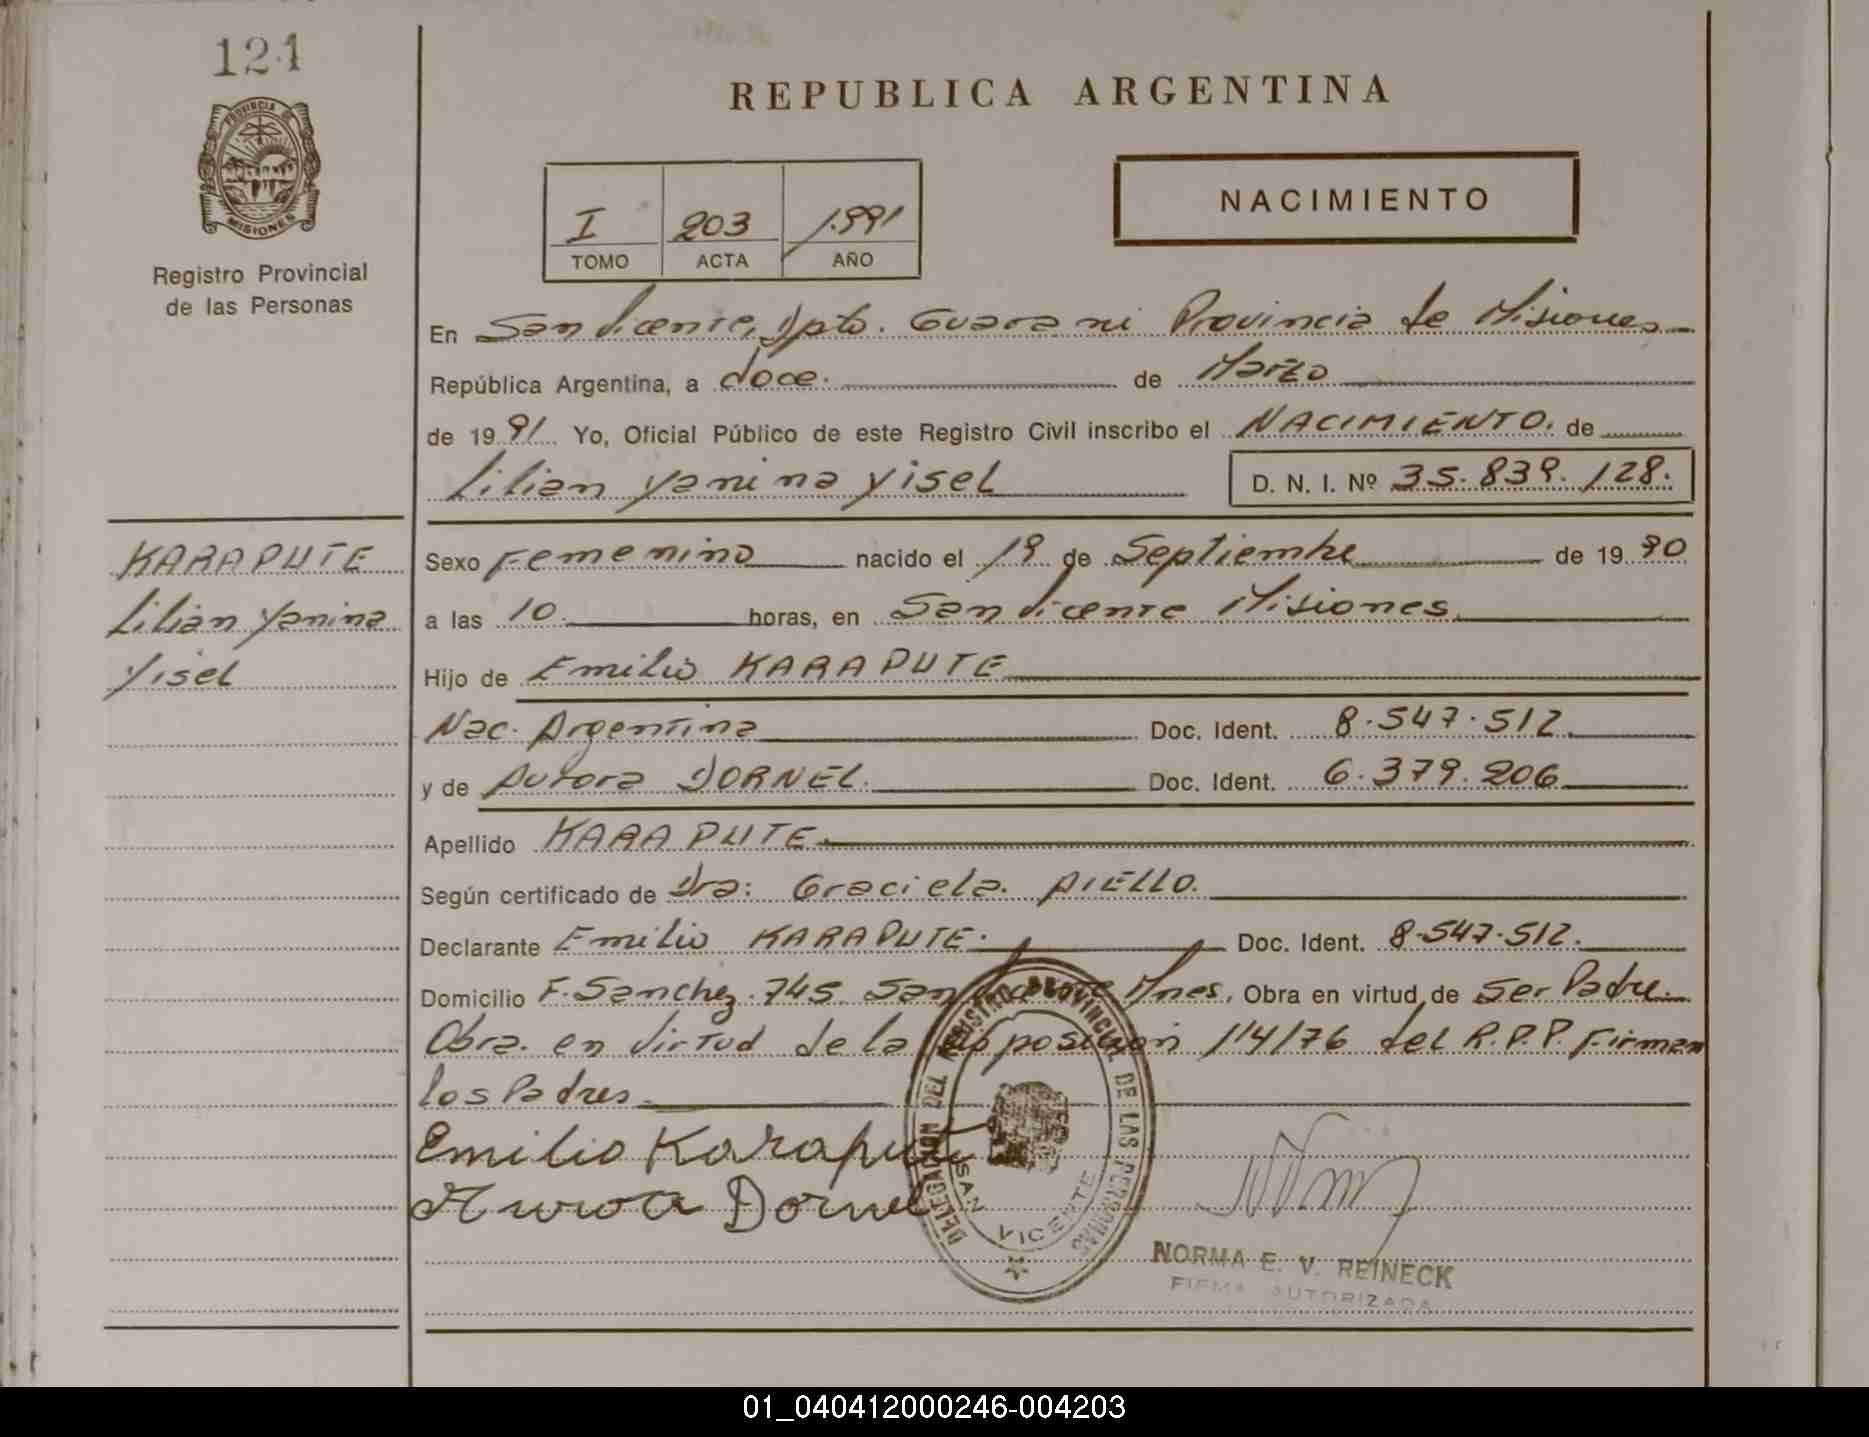 121
PROVINCIA DE
MISIONES
Registro Provincial
de las Personas
REPUBLICA ARGENTINA
I 203 1.991
TOMO ACTA AÑO
NACIMIENTO
En San Vicente, Dpto. Guarani Provincia de Misiones
República Argentina, a doce. de Marzo
de 1991 Yo, Oficial Público de este Registro Civil inscribo el NACIMIENTO. de
Lilian Yanina Yisel D. N. I. Nº 35.839.128.
KARAPUTE
Lilian Yanina
Yisel
Sexo Femenino nacido el 19 de Septiembre de 1990
a las 10 horas, en San Vicente Misiones
Hijo de Emilio KARAPUTE
Nac. Argentina Doc. Ident. 8.547.512
y de Aurora DORNEL. Doc. Ident. 6.379.206
Apellido KARAPUTE
Según certificado de Dra: Graciela AIELLO.
Declarante Emilio KARAPUTE. Doc. Ident. 8.547.512.
Domicilio F. Sanchez. 745 San Vicente Mnes. Obra en virtud de Ser Padre.
Obra en Virtud de la Disposición 114/76 del R.P.P. Firman
los Padres
Emilio Karapute
Aurora Dornel
DELEGACION DEL REGISTRO PROVINCIAL DE LAS PERSONAS
SAN VICENTE
NORMA E. V. REINECK
FIRMA AUTORIZADA
01_040412000246-004203